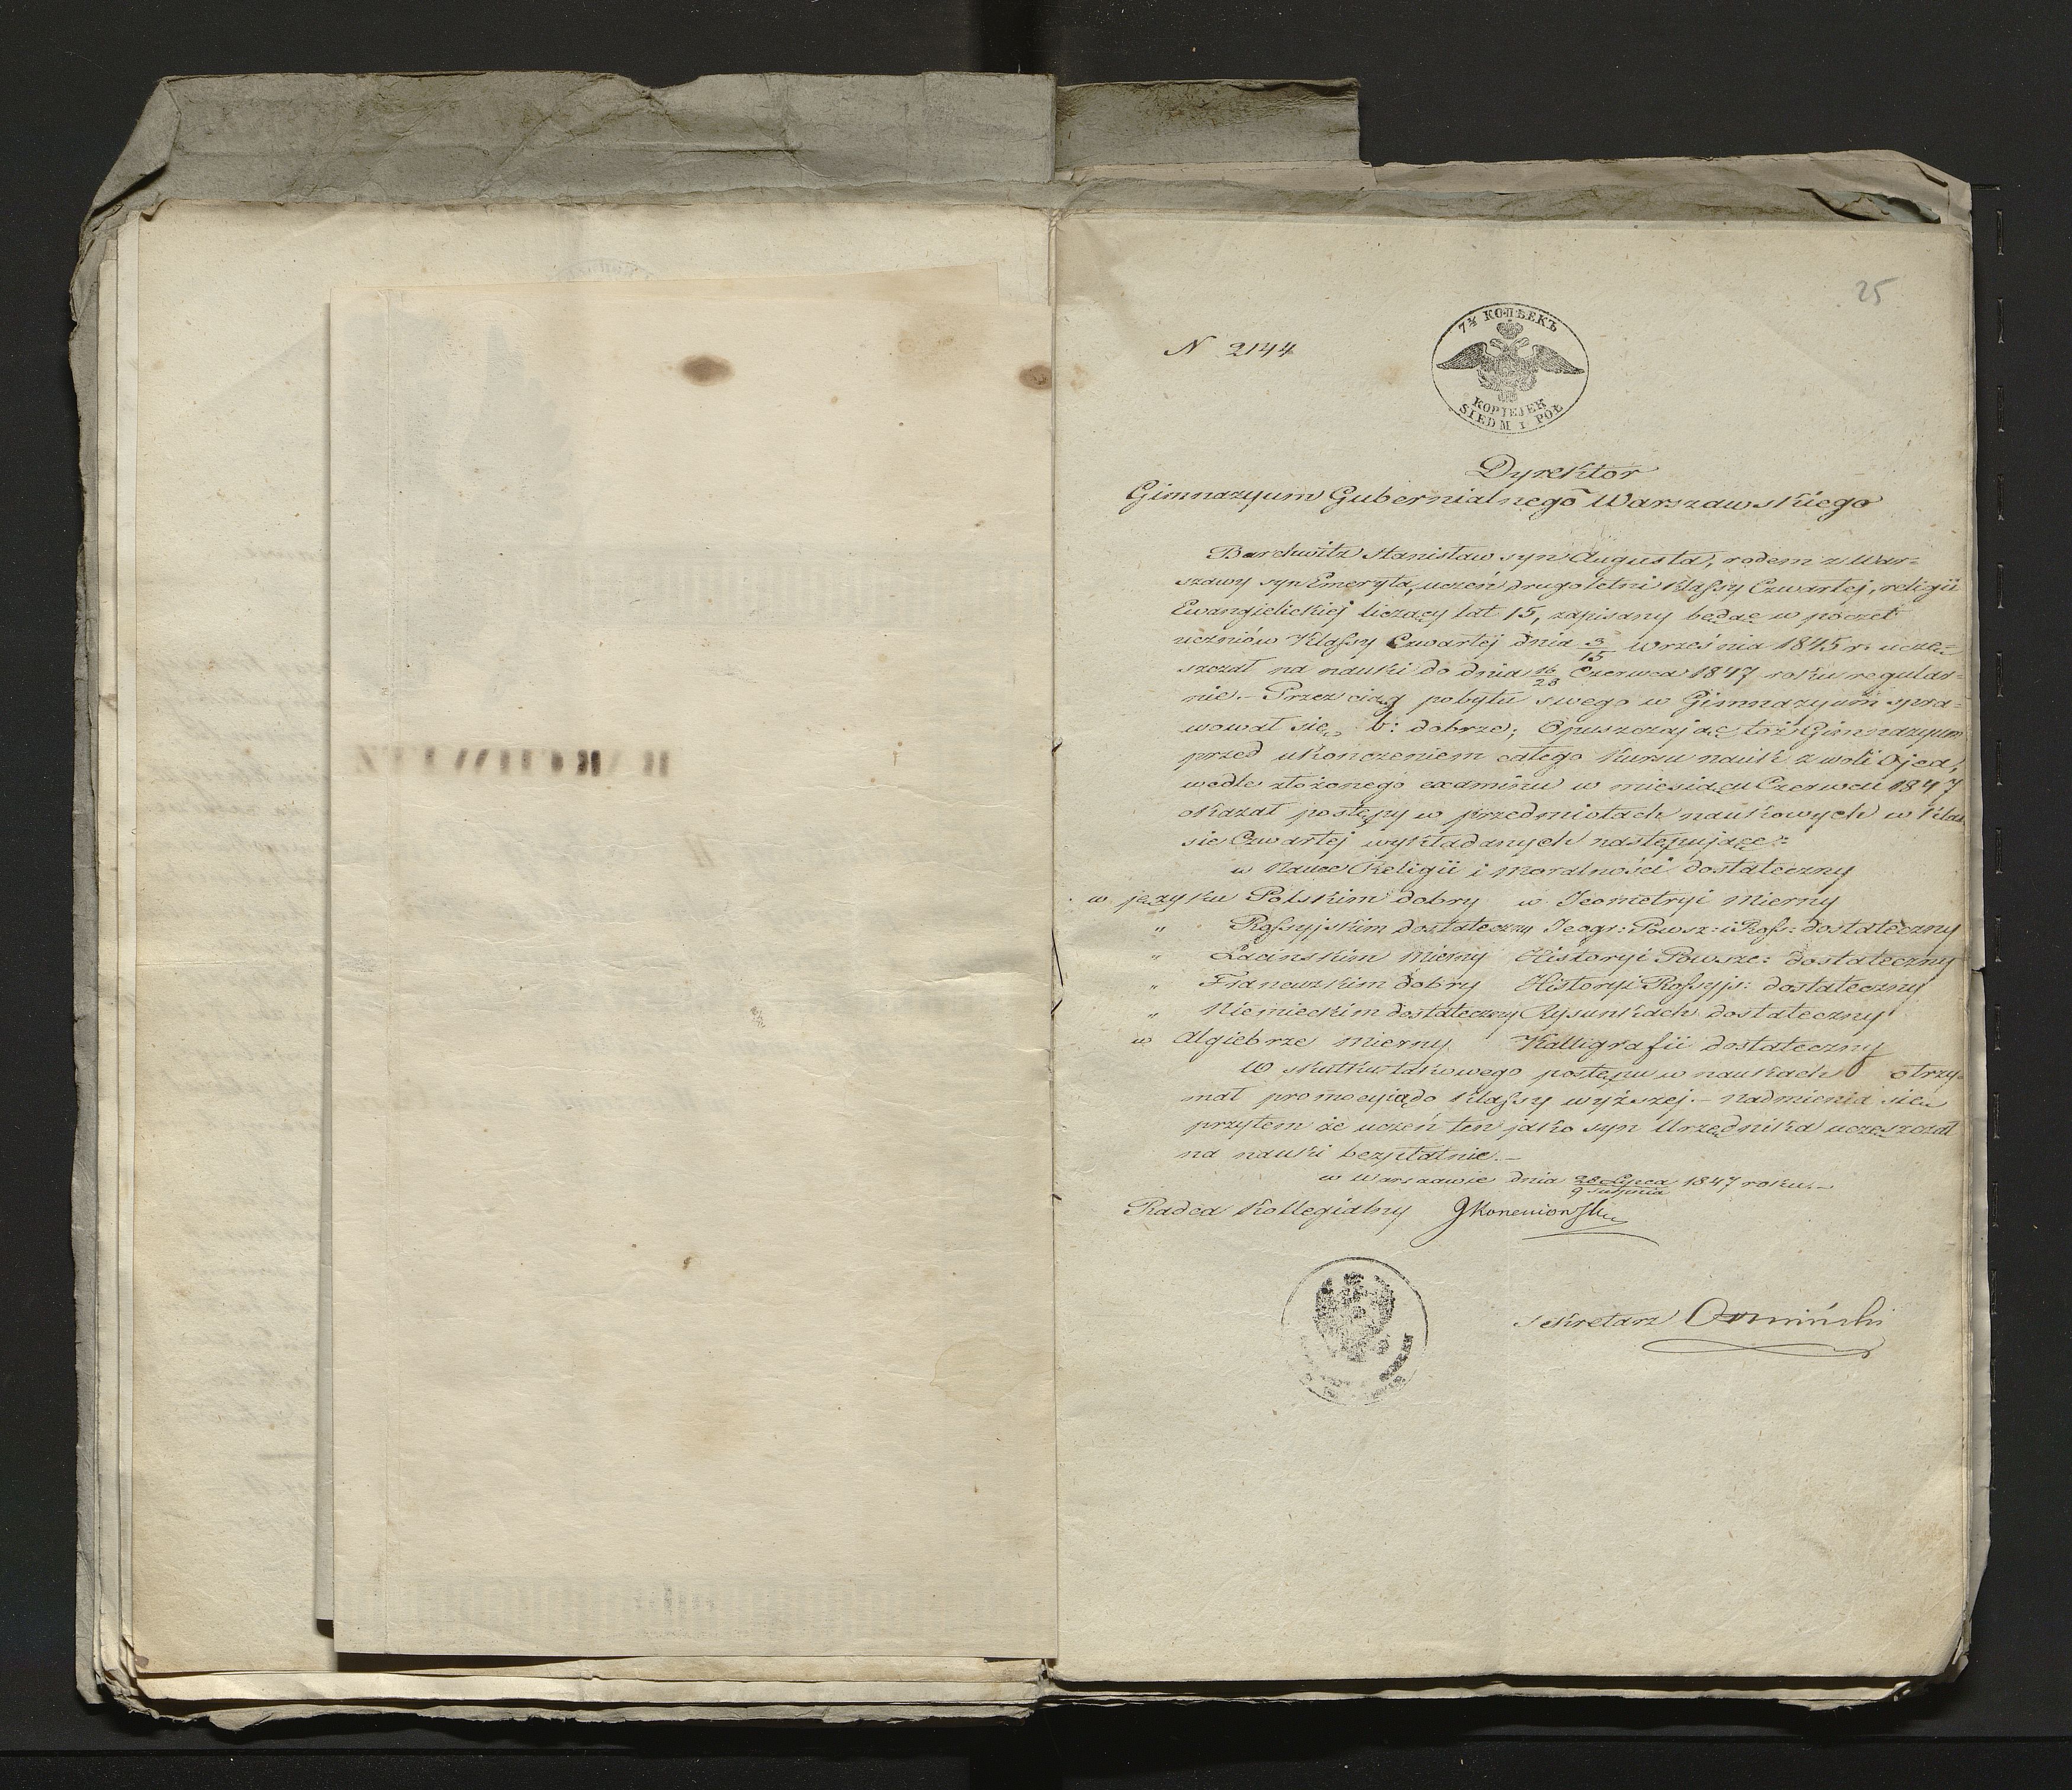 25
N 2144
7½ КОПѢЕКЪ
KOPIEJEK
SIEDM I PÓŁ
Dyrektor
Gimnazyum Gubernialnego Warszawskiego
Barchwitz Stanisław syn Augusta, rodem z War=
szawy syn Emeryta, uczeń drugoletni Klassy Czwartej, religii
Ewangielickiej liczący lat 15, zapisany będąc w poczet
uczniów Klassy Czwartej dnia 3/15 Września 1845 r. uczę=
szczał na nauki do dnia 16/28 Czerwca 1847 roku regular=
nie. – Przez ciąg pobytu swego w Gimnazyum spra=
wował się b: dobrze; Opuszczając toż Gimnazyum
przed ukończeniem całego Kursu nauk z woli Ojca,
wedle złożonego examinu w miesiącu Czerwcu 1847
okazał postępy w przedmiotach naukowych w Klas
sie Czwartej wykładanych następujące:
w Nauce Religii i moralności dostateczny
w języku Polskim dobry w Jeometryi Mierny
" Rossyjskim dostateczny Jeogr: Powsz: i Ross: dostateczny
" Łacinskim Mierny Historyi Powsze: dostateczny
" Francuzkim dobry Historyi Rossyjs: dostateczny
" Niemieckim dostateczny Rysunkach dostateczny
w Algiebrze mierny Kalligrafii dostateczny
W skutku takowego postępu w naukach otrzy=
mał promocyią do Klassy wyższej. – nadmienia się
przytem że uczeń ten jako syn Urzędnika uczęszczał
na nauki bezpłatnie. –
w Warszawie dnia 28 Lipca/9 Sierpnia 1847 roku. –
Radca Kollegialny JKorzeniowski
Sekretarz